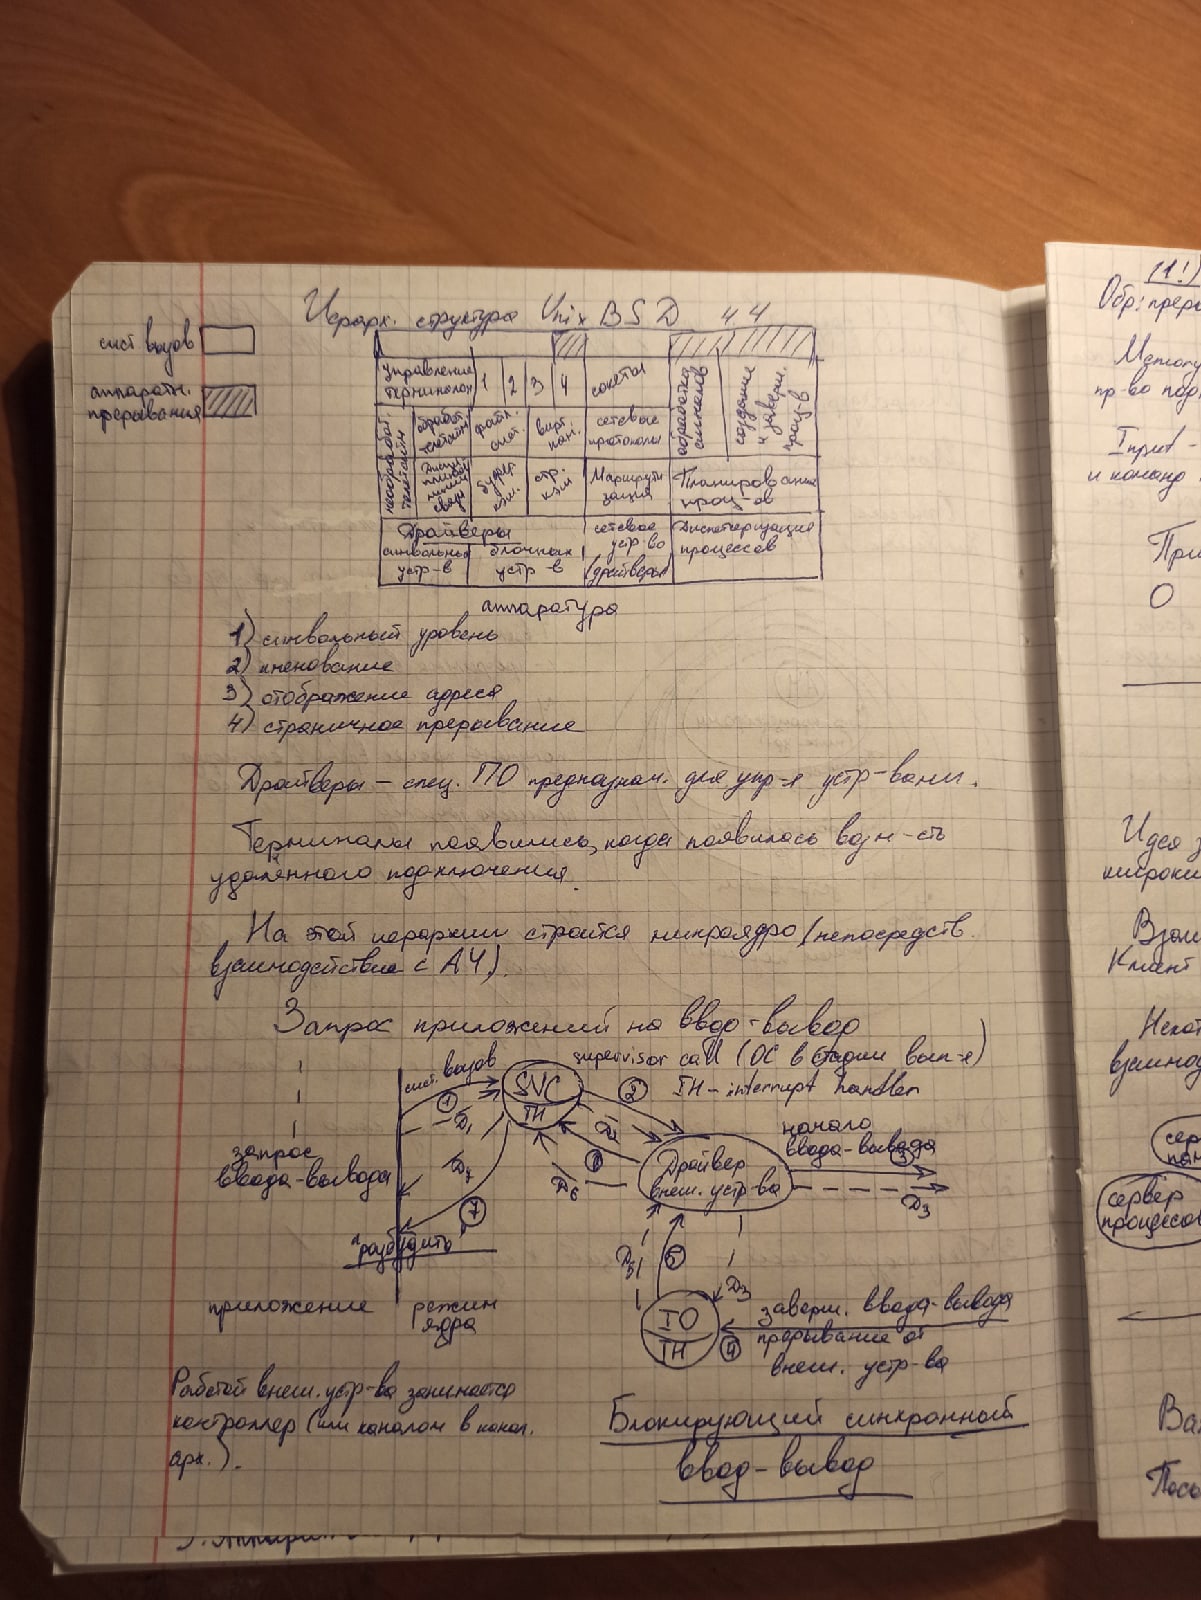 Иерарх. структура Unix BSD 44
сист вызов
аппаратн.
прерывания
управление
терминалом
1 2 3 4
сокеты
обработка
сигналов
создание
и заверш.
проц-в
необработ.
телетайп
обработ.
телетайп
файл.
сист.
вирт.
пам.
сетевые
протоколы
Дисцип
линии
связи
буфер
кэш
стр.
кэш
Маршрути
зация
Планирование
проц-ов
Драйверы
символьных
устр-в
блочных
устр-в
сетевое
устр-во
(драйверы)
Диспетчеризация
процессов
аппаратура
1) символьный уровень
2) именование
3) отображение адреса
4) страничное прерывание
Драйверы – спец. ПО предназнач. для упр-я устр-вами.
Терминалы появились, когда появилась возм-сть
удалённого подключения.
На этой иерархии строится микроядро (непосредств.
взаимодействие с АЧ).
Запрос приложений на ввод-вывод
supervisor call (ОС в стадии вып-я)
IH – interrupt handler
сист. вызов
SVC
IH
1
Д1
2
Д2
запрос
ввода-вывода
начало
ввода-вывода
3
Д3
Драйвер
внеш. устр-ва
6
Д6
Д7
7
"разбудить"
Д5
5
Д3
IO
IH
4
заверш. ввода-вывода
прерывание от
внеш. устр-ва
приложение
режим
ядра
Работой внеш. устр-ва занимается
контроллер (или каналом в канал.
арх.).
Блокирующий синхронный
ввод-вывод
(1!)
Обр: прер
пр-во под
Input -
и команд
При
Идея
Взаи
Клиент
взаимод
сер
пам
сервер
процессов